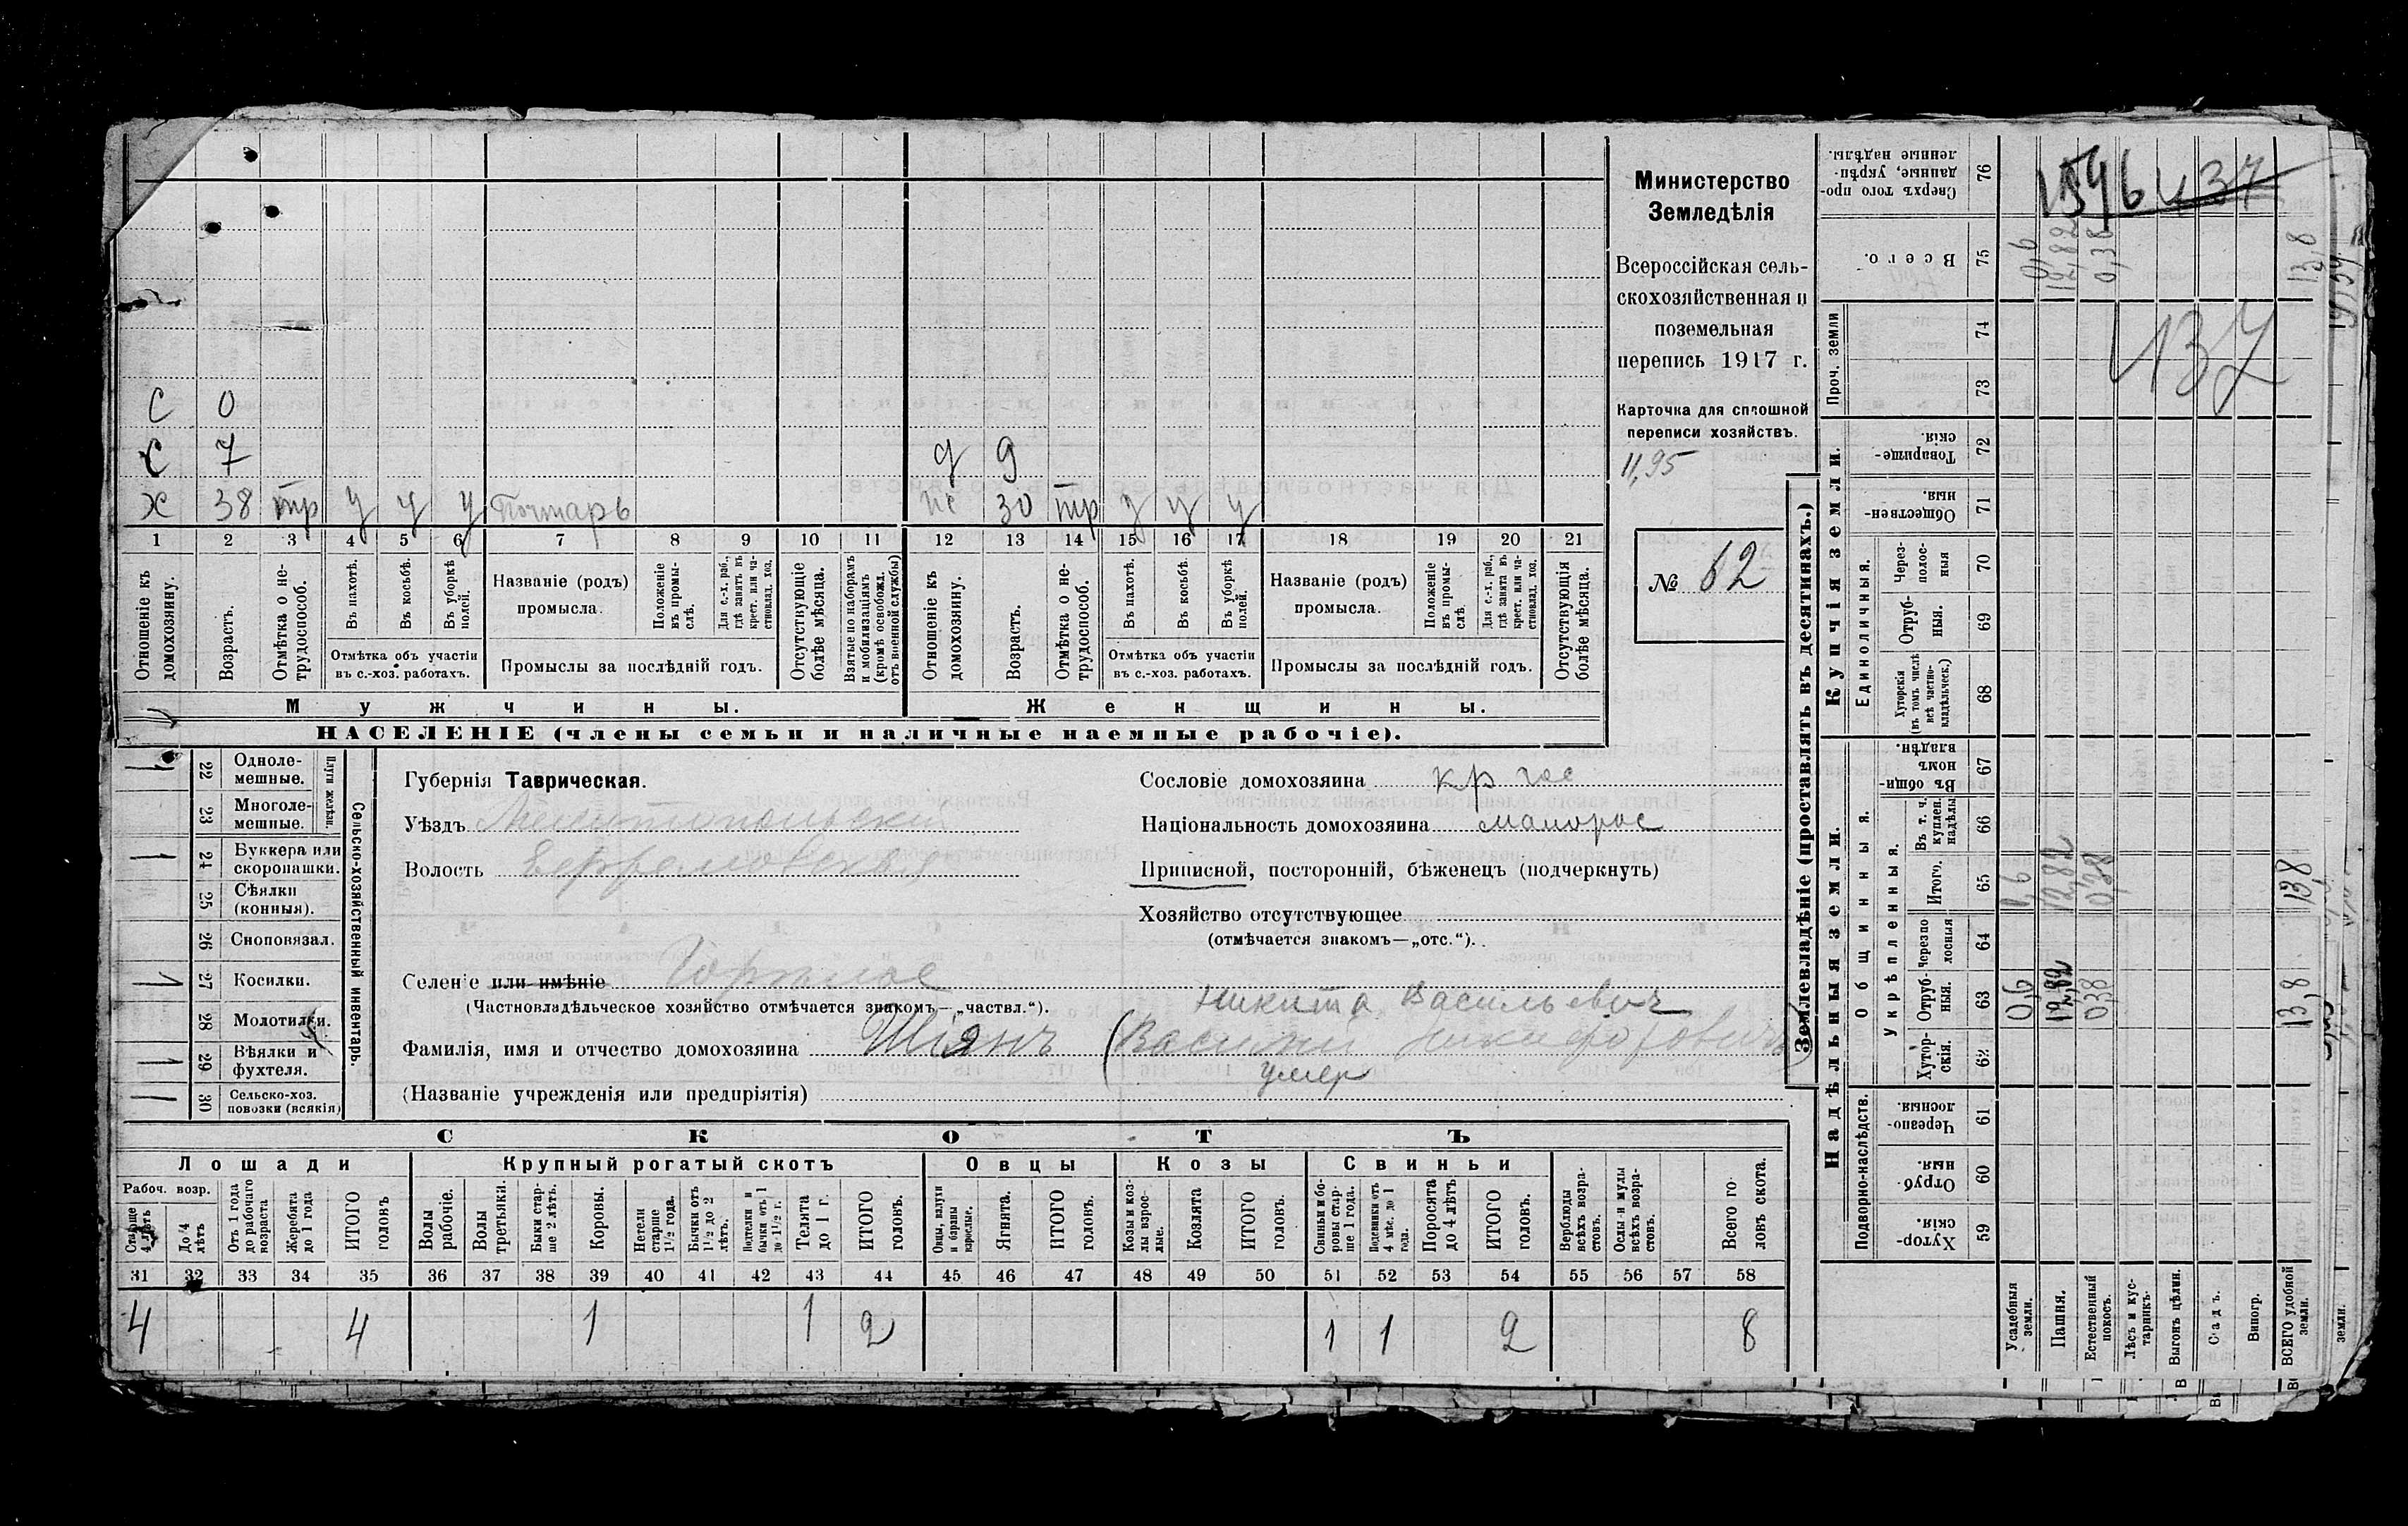 Министерство
Земледѣлія
Всероссійская сель-
скохозяйственная и
поземельная
перепись 1917 г.
Карточка для сплошной
переписи хозяйствъ.
11,95
№ 62
С 0
С 7
Х 38 тр у у у Почтарь
д 9
же 30 тр у у у
1 2 3 4 5 6 7 8 9 10 11 12 13 14 15 16 17 18 19 20 21
Отношеніе къ домохозяину.
Возрастъ.
Отмѣтка о не-трудоспособ.
Въ пахотѣ.
Въ косьбѣ.
Въ уборкѣ полей.
Отмѣтка объ участіи
въ с.-хоз. работахъ.
Названіе (родъ)
промысла.
Положеніе въ промы-слѣ.
Для с.-х. раб., гдѣ занятъ въ крест. или ча-стновлад. хоз.
Промыслы за послѣдній годъ.
Отсутствующіе болѣе мѣсяца.
Взятые по наборамъ и мобилизаціямъ (кромѣ освобожд. отъ военной службы)
Отношеніе къ домохозяину.
Возрастъ.
Отмѣтка о не-трудоспособ.
Въ пахотѣ.
Въ косьбѣ.
Въ уборкѣ полей.
Отмѣтка объ участіи
въ с.-хоз. работахъ.
Названіе (родъ)
промысла.
Положеніе въ промы-слѣ.
Для с.-х. раб., гдѣ занята въ крест. или ча-стновлад. хоз.
Промыслы за послѣдній годъ.
Отсутствующія болѣе мѣсяца.
Мужчины.
Женщины.
НАСЕЛЕНІЕ (члены семьи и наличные наемные рабочіе).
Сельско-хозяйственный инвентарь.
Плуги желѣзн.
22 Одноле-мешные.
23 Многоле-мешные.
24 Буккера или скоропашки.
25 Сѣялки (конныя).
26 Сноповязал.
27 Косилки.
28 Молотилки.
29 Вѣялки и фухтеля.
30 Сельско-хоз. повозки (всякія)
Губернія Таврическая.
Уѣздъ Мелитопольскій
Волость Ефремовская
Селеніе или имѣніе Горѣлое
(Частновладѣльческое хозяйство отмѣчается знакомъ—„частвл.“).
Сословіе домохозяина кр
Національность домохозяина малорос
Приписной, посторонній, бѣженецъ (подчеркнуть)
Хозяйство отсутствующее
(отмѣчается знакомъ—„отс.“).
Никита Васильевич
Фамилія, имя и отчество домохозяина Шіянъ (Василий Никифорович)
умер
(Названіе учрежденія или предпріятія)
СКОТЪ
Лошади
Крупный рогатый скотъ
Овцы
Козы
Свиньи
Рабоч. возр.
Старше 4 лѣтъ
До 4 лѣтъ
Отъ 1 года до рабочаго возраста
Жеребята до 1 года
ИТОГО головъ
Волы рабочіе.
Волы третьяки.
Быки стар-ше 2 лѣтъ.
Коровы.
Нетели старше 1 1/2 года.
Бычки отъ 1 1/2 до 2 лѣтъ.
Подтелки и бычки отъ 1 до 1 1/2 г.
Телята до 1 г.
ИТОГО головъ.
Овцы, валухи и бараны взрослые.
Ягнята.
ИТОГО головъ.
Козы и коз-лы взрос-лые.
Козлята
ИТОГО головъ.
Свиньи и бо-ровы стар-ше 1 года.
Подсвинки отъ 4 мѣс. до 1 года.
Поросята до 4 лѣтъ
ИТОГО головъ.
Верблюды всѣхъ возра-стовъ.
Ослы и мулы всѣхъ возра-стовъ.
Всего го-ловъ скота.
31 32 33 34 35 36 37 38 39 40 41 42 43 44 45 46 47 48 49 50 51 52 53 54 55 56 57 58
4 4 1 1 2 1 1 2 8
Землевладѣніе (проставлять въ десятинахъ.)
Надѣльныя земли.
Купчія земли.
Проч. земли
Подворно-наслѣдств.
Общинныя.
Укрѣпленныя.
Единоличныя.
59 Хутор-скія.
60 Отруб-ныя.
61 Черезпо-лосныя.
62 Хутор-скія.
63 Отруб-ныя. 0,6 12,82 0,38 13,8
64 Черезпо-лосныя
65 Итого. 0,6 12,82 0,38 13,8
66 Въ т. ч. куплен. надѣлы
67 Въ общи-номъ владѣн.
68 Хуторскія (въ томъ числѣ всѣ частно-владѣльческ.)
69 Отруб-ныя.
70 Через-полос-ныя
71 Обществен-ныя.
72 Товарище-скія.
73
74
75 Всего. 0,6 12,82 0,38 13,8
76 Сверхъ того про-данные, укрѣп-ленные надѣлы.
137
Усадебныя земли.
Пашня.
Естественный покосъ.
Лѣсъ и кус-тарникъ.
Выгонъ цѣлин.
Садъ.
Виногр.
ВСЕГО удобной земли.
земли.